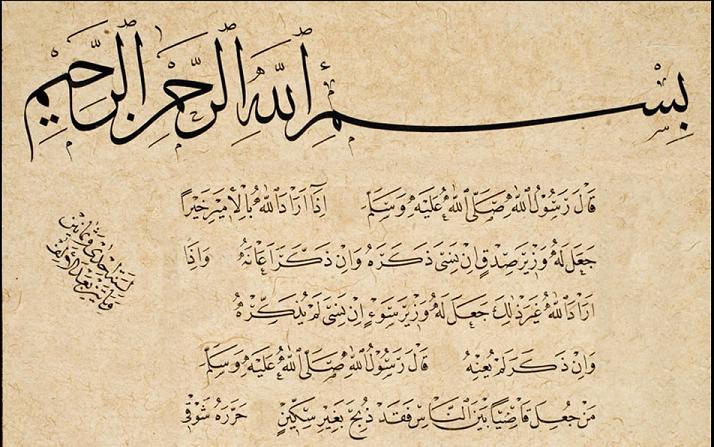 بِسْمِ اللهِ الرَّحْمٰنِ الرَّحِيْمِ
قَالَ رَسُوْلُ اللهِ صَلَّى اللهُ عَلَيْهِ وَسَلَّمَ اِذَا اَرَادَ اللهُ بِالْاَمِيْرِ خَيْرًا
جَعَلَ لَهُ وَزِيْرَ صِدْقٍ اِنْ نَسِيَ ذَكَّرَهُ وَاِنْ ذَكَرَ اَعَانَهُ وَاِذَا
اَرَادَ اللهُ غَيْرَ ذٰلِكَ جَعَلَ لَهُ وَزِيْرَ سُوْءٍ اِنْ نَسِيَ لَمْ يُذَكِّرْهُ
وَاِنْ ذَكَرَ لَمْ يُعِنْهُ قَالَ رَسُوْلُ اللهِ صَلَّى اللهُ عَلَيْهِ وَسَلَّمَ
مَنْ جُعِلَ قَاضِيًا بَيْنَ النَّاسِ فَقَدْ ذُبِحَ بِغَيْرِ سِكِّيْنٍ حَرَّرَهُ شَوْقِي
لسنة احدى وثمانين
ومائتين بعد الالف